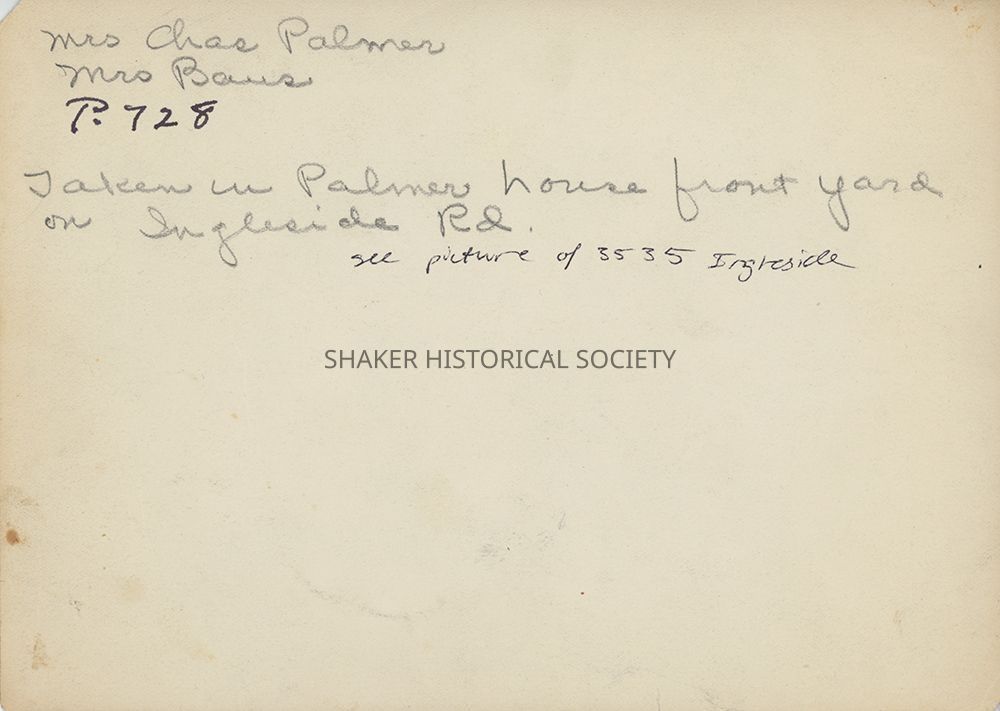 Mrs Chas Palmer
Mrs Baus
P. 728
Taken in Palmer house front yard
on Ingleside Rd.
see picture of 3535 Ingleside
SHAKER HISTORICAL SOCIETY